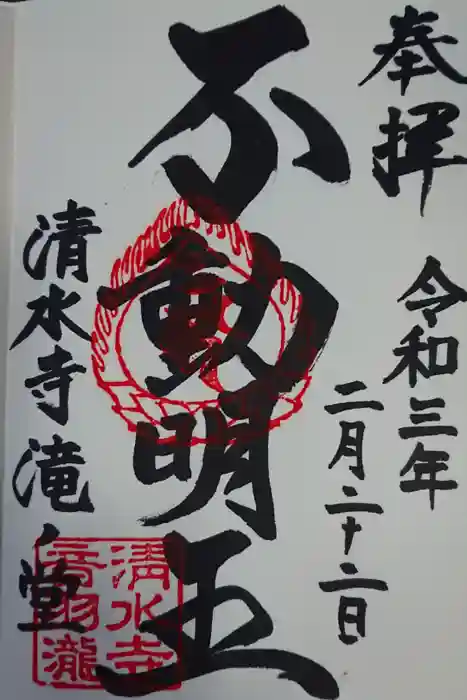 奉拝
令和三年
二月二十二日
不動明王
清水寺滝ノ堂
清水寺
音羽瀧